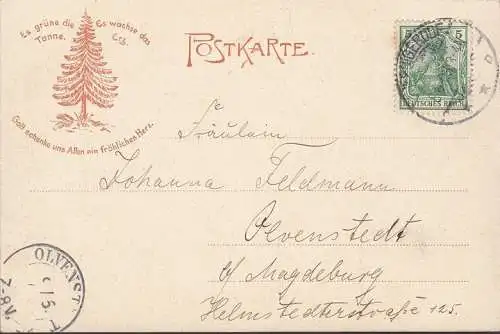 Es grüne die Tanne.
Es wachse das Erz.
Gott schenke uns Allen ein fröhliches Herz.
POSTKARTE.
5 5
DEUTSCHES REICH
Fräulein
Johanna Feldmann
Olvenstedt
b/ Magdeburg
Helmstedterstraße 125.
OLVENST
7-8N.